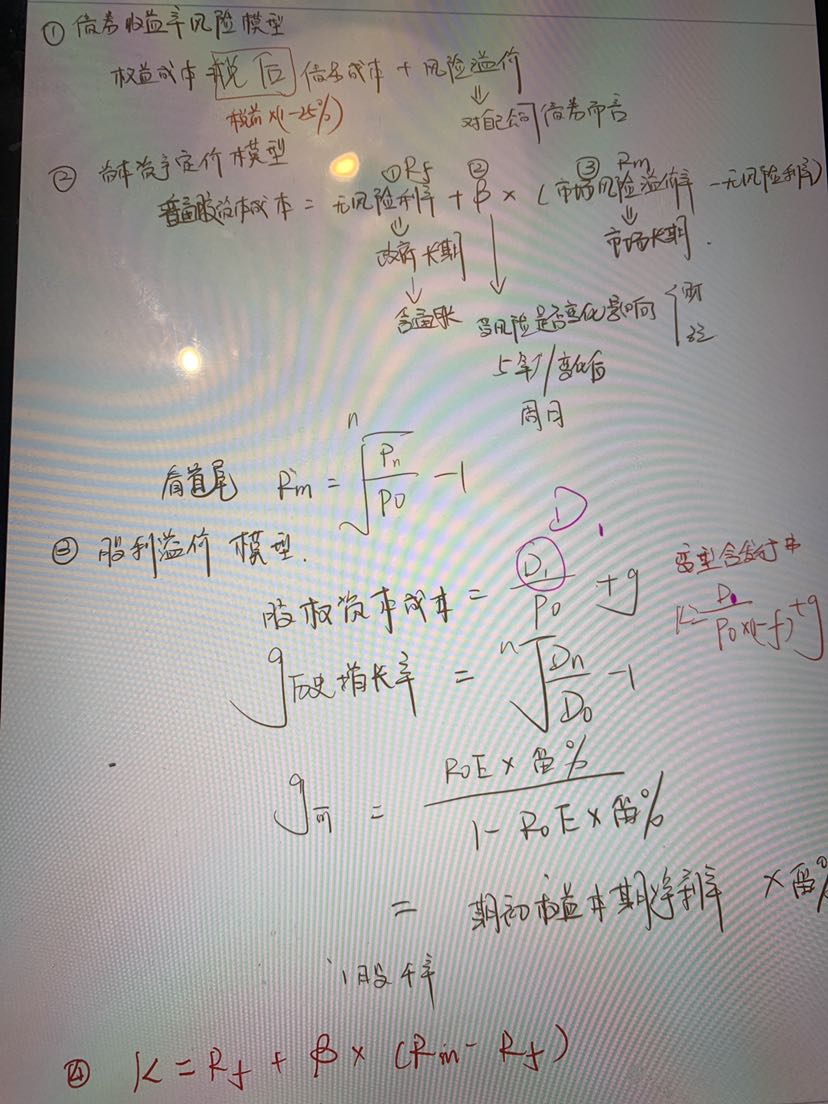 ① 债券收益率风险模型
权益成本 税后 债务成本 + 风险溢价
税前×(1-25%)
⇓ 对自己公司债券而言
② 资本资产定价模型
①Rf ② ③ Rm
普通股资本成本 = 无风险利率 + β × (市场风险溢价率 - 无风险利率)
⇓ ⇓
政府长期 市场长期.
↓ ↓
含通胀 当风险是否变化影响
5年/变化后
周月
看首尾 Rm = ⁿ√(Pn/P0) - 1
D1
③ 股利溢价模型.
股权资本成本 = D1/P0 + g
变型含发行率
K= D1/P0×(1-f) + g
g历史增长率 = ⁿ√(Dn/D0) - 1
g可 = ROE×留% / 1-ROE×留%
= 期初权益本期净利率 ×留%
④ K = Rf + β × (Rm - Rf)